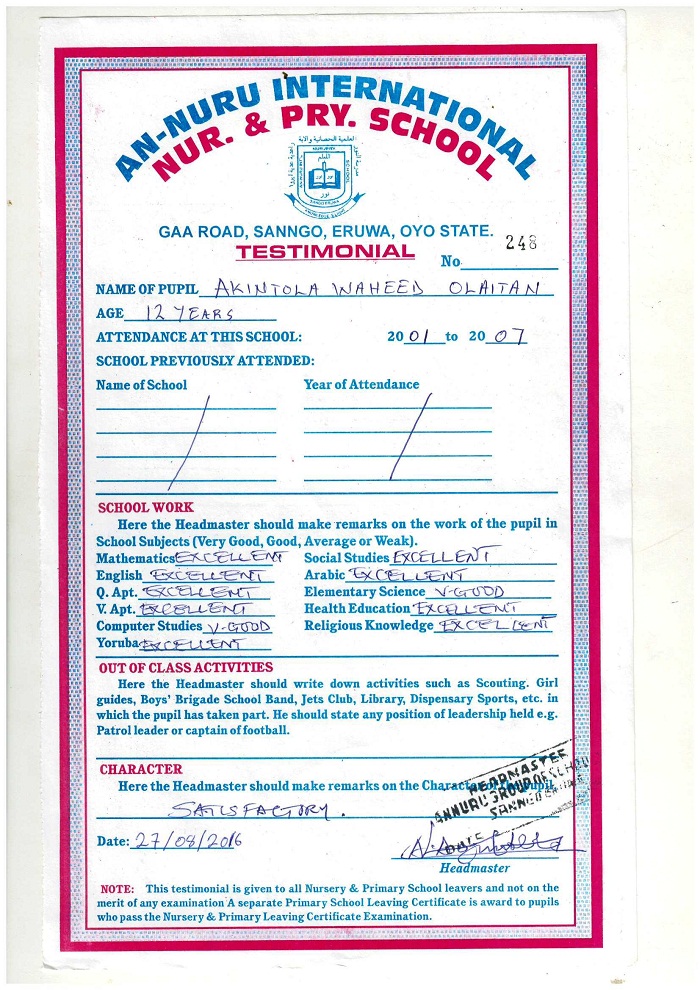 AN-NURU INTERNATIONAL
NUR. & PRY. SCHOOL
GAA ROAD, SANNGO, ERUWA, OYO STATE.
TESTIMONIAL
No 248
NAME OF PUPIL AKINTOLA WAHEED OLAITAN
AGE 12 YEARS
ATTENDANCE AT THIS SCHOOL: 20 01 to 20 07
SCHOOL PREVIOUSLY ATTENDED:
Name of School Year of Attendance
SCHOOL WORK
Here the Headmaster should make remarks on the work of the pupil in
School Subjects (Very Good, Good, Average or Weak).
Mathematics EXCELLENT Social Studies EXCELLENT
English EXCELLENT Arabic EXCELLENT
Q. Apt. EXCELLENT Elementary Science V-GOOD
V. Apt. EXCELLENT Health Education EXCELLENT
Computer Studies V-GOOD Religious Knowledge EXCELLENT
Yoruba EXCELLENT
OUT OF CLASS ACTIVITIES
Here the Headmaster should write down activities such as Scouting. Girl
guides, Boys' Brigade School Band, Jets Club, Library, Dispensary Sports, etc. in
which the pupil has taken part. He should state any position of leadership held e.g.
Patrol leader or captain of football.
CHARACTER
Here the Headmaster should make remarks on the Character of the pupil
SATISFACTORY.
HEADMASTER
ANNURU GROUP OF SCHOOL
DATE
Date: 27/08/2016
Headmaster
NOTE: This testimonial is given to all Nursery & Primary School leavers and not on the
merit of any examination A separate Primary School Leaving Certificate is award to pupils
who pass the Nursery & Primary Leaving Certificate Examination.